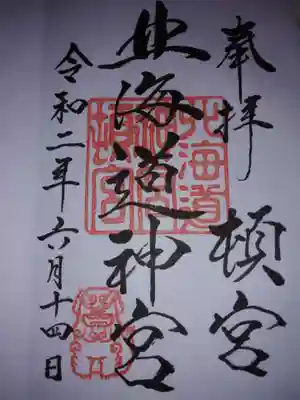 奉拝
頓宮
北海道神宮
令和二年六月十四日
北海道
神宮
頓宮